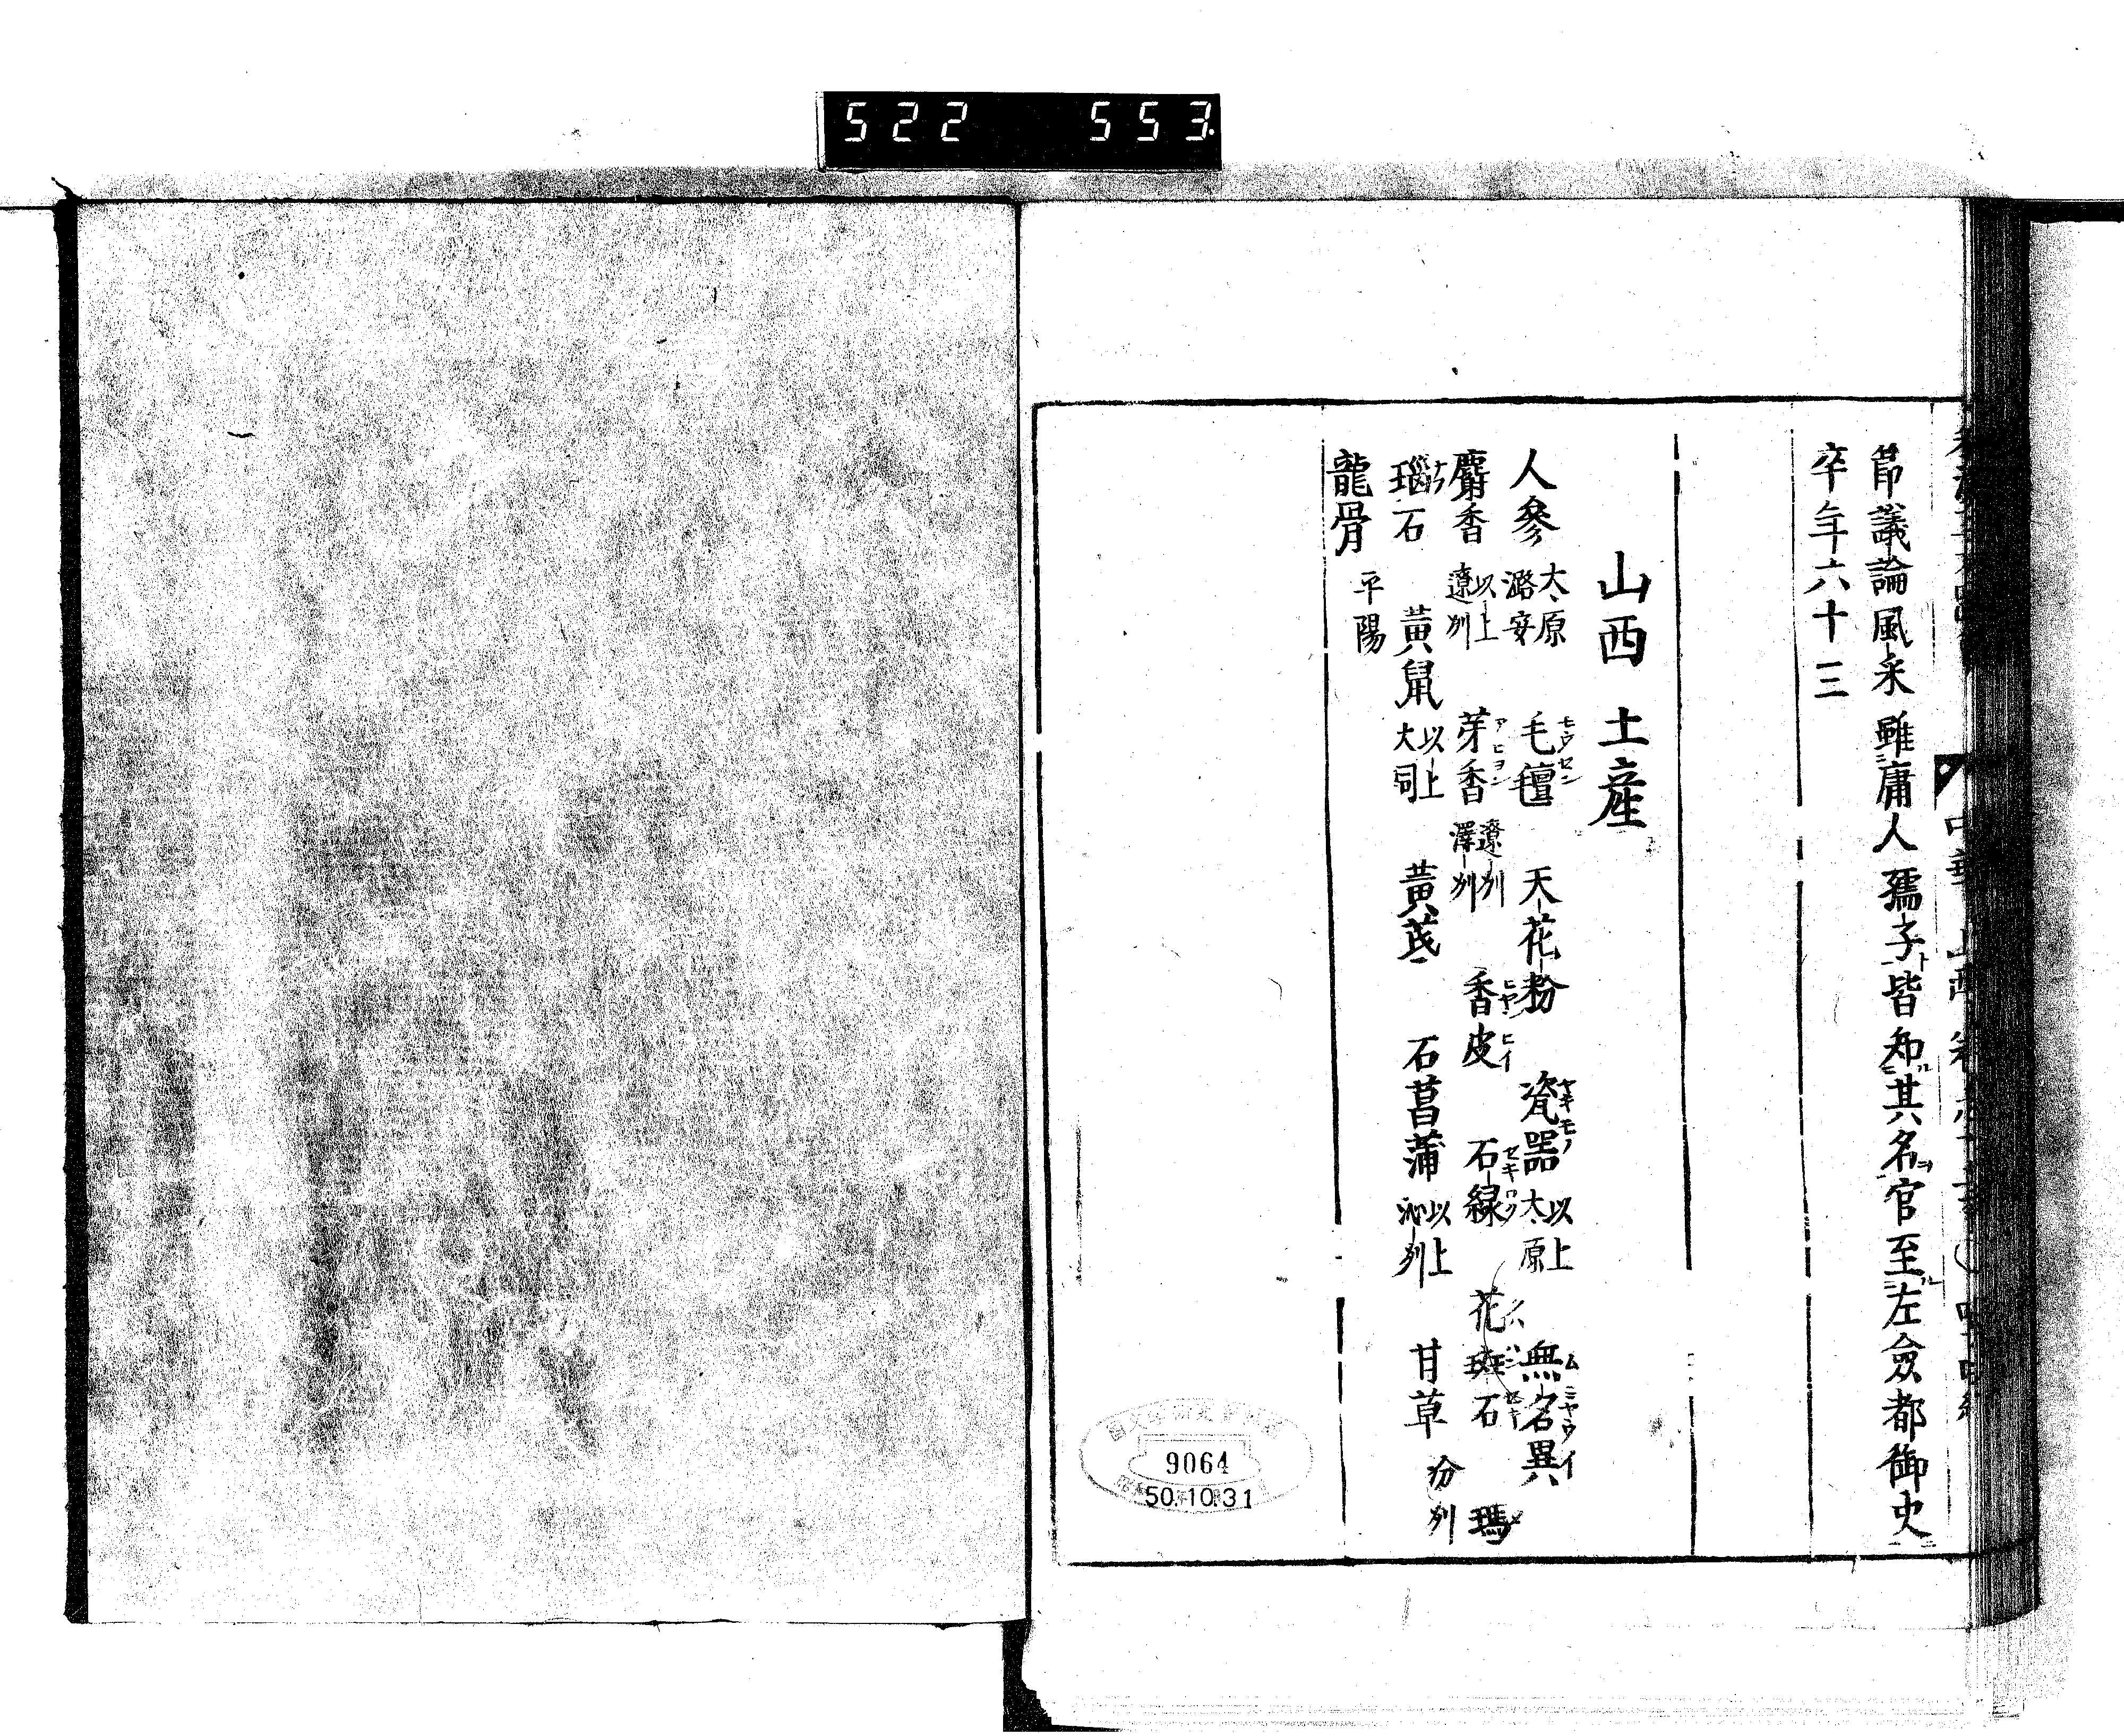 522 553
節議論風采雖庸人孺子皆知其名官至左僉都御史
卒年六十三
山西土産
人參 太原 潞安 毛氊 天花粉 瓷器 以上 太原 無名異
麝香 以上 遼州 芽香 遼州 澤州 香皮 石線 花斑石 瑪
瑙石 黃鼠 以上 大同 黃芪 石菖蒲 以上 沁州 甘草 汾州
龍骨 平陽
9064
50.10.31